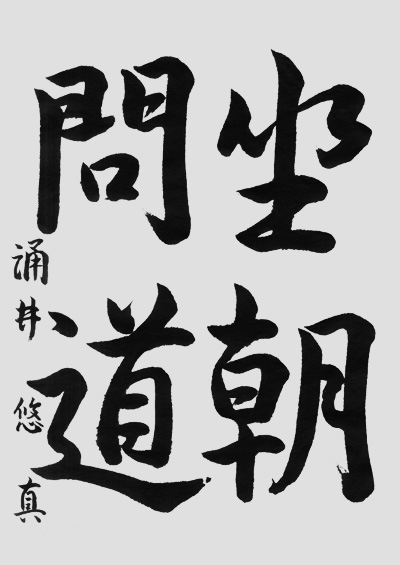 坐朝
問道
涌井悠真